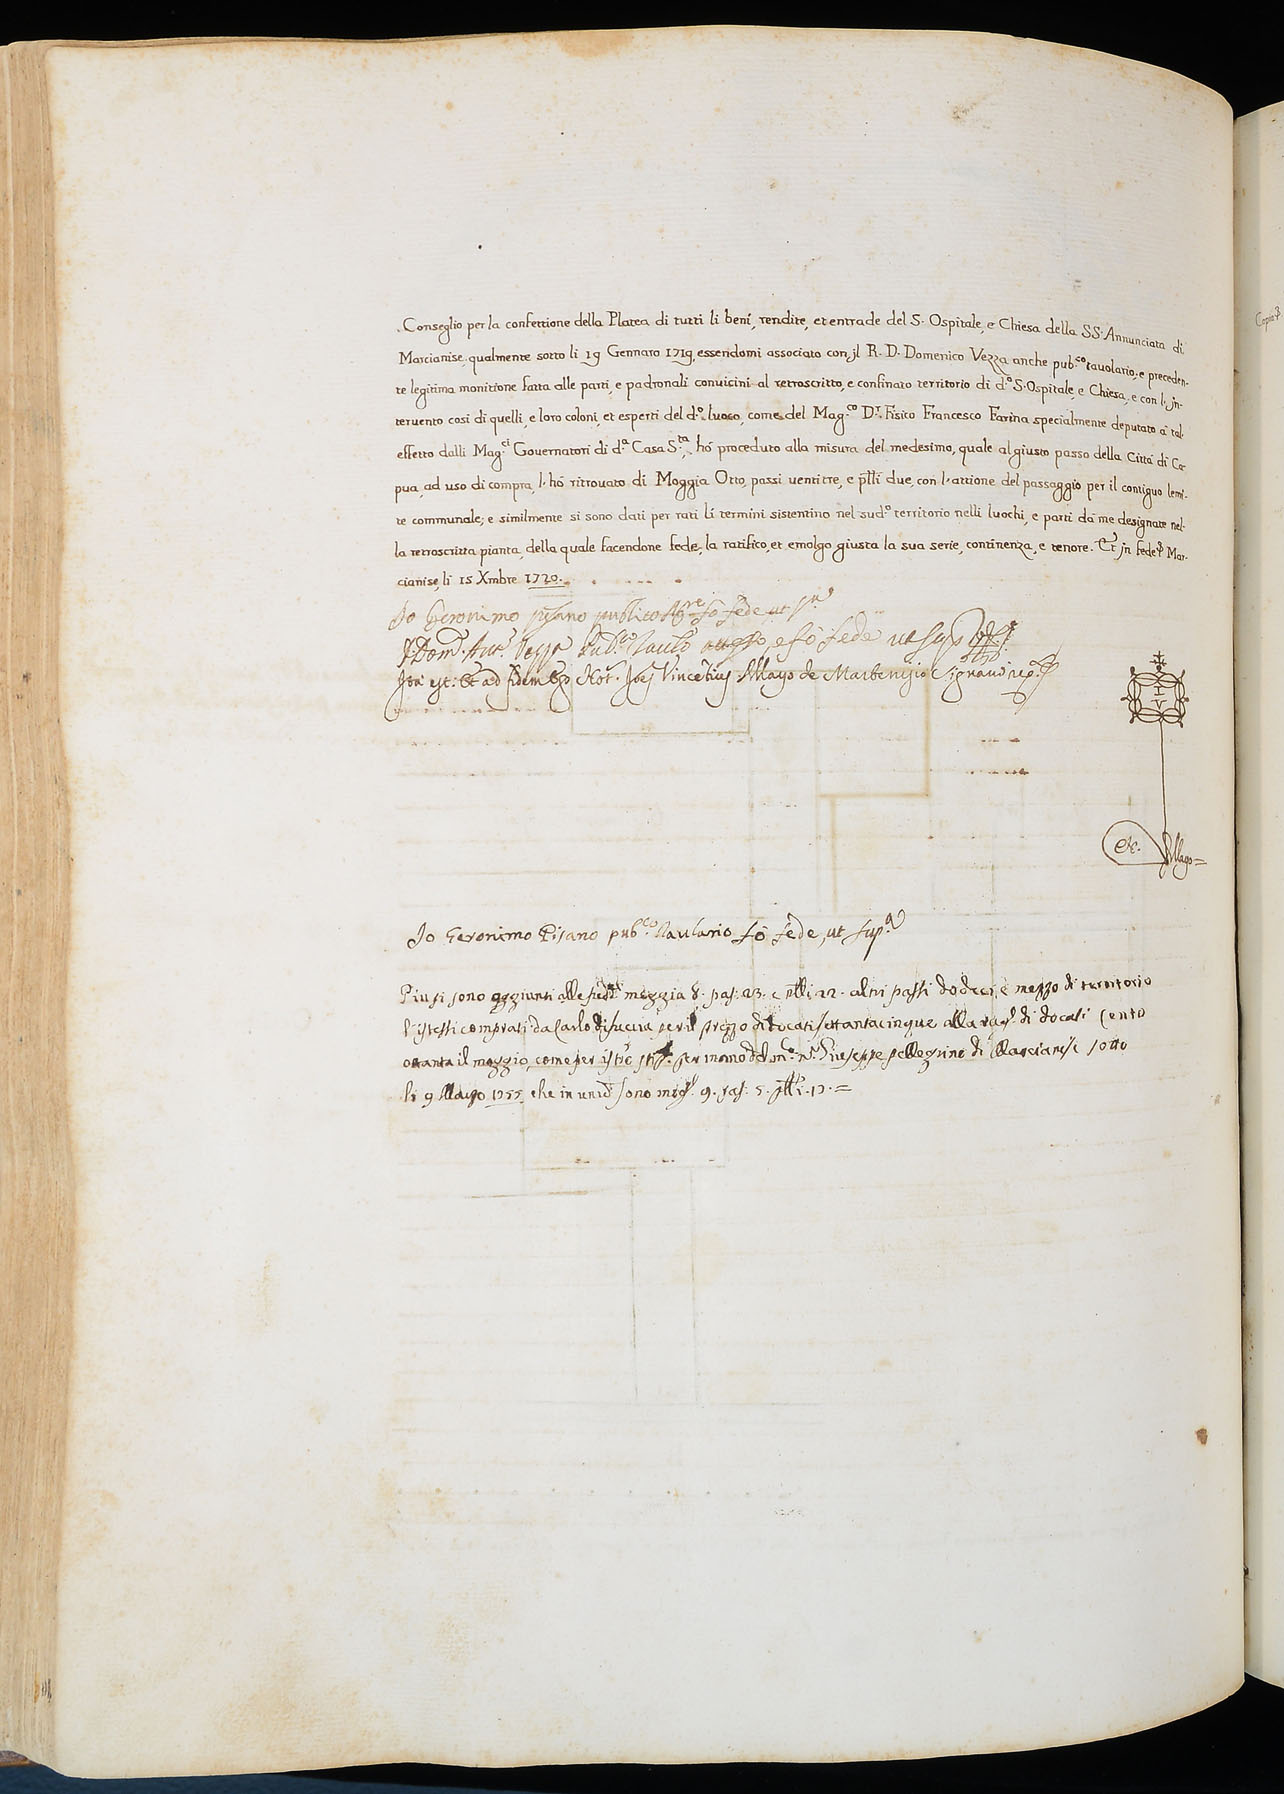 Conseglio per la confettione della Platea di tutti li beni, rendite, et entrade del S. Ospitale, e Chiesa della SS. Annunciata di
Marcianise, qualmente sotto li 19 Gennaro 1719, essendomi associato con il R. D. Domenico Vezza anche pub.co tavolario, e preceden-
te legitima monitione fatta alle parti, e padronali convicini al retroscritto, e confinato territorio di d.o S. Ospitale, e Chiesa, e con l'jn-
tervento cosi di quelli, e loro coloni, et esperti del d.o luoco, come del Mag.co D.r Fisico Francesco Farina specialmente deputato à tal
effetto dalli Mag.ci Governatori di d.a Casa S.ta, hó proceduto alla misura del medesimo, quale al giusto passo della Città di Ca-
pua, ad uso di compra, l'hó ritrovato di Moggia Otto, passi ventitre, e p̃tti due, con l'attione del passaggio per il contiguo lemi-
te communale; e similmente si sono dati per rati li termini sistentino nel sud.o territorio nelli luochi, e parti dá me designate nel-
la retroscritta pianta, della quale facendone fede, la ratifico, et emolgo giusta la sua serie, continenza, e tenore. Et jn fede Mar-
cianise, li 15 Xmbre 1720.
Io Geronimo pisano publico fó fede ut
Dom. Vezza Pub.co e fó fede ut sup.
Ita est: Et ad fidem Ego Not. Joes Vincetius Mago de Martenisio Signavi
I V
Mago=
Io Geronimo Pisano pub.co Tavlario fó fede, ut sup.a
Piu si sono aggiunti alle sud.e moggia 8. pas: 23. e p̃tti 22. altri passi dodeci e mezzo di territorio
l'istessi comprati da Carlo di fuccia per il prezzo di docati settantacinque alla rag.e di docati cento
ottanta il moggio, come per per mano del m.o n.r Giuseppe Pellegrino di Marcianise sotto
li 9 Maggio 1755 che in unid. sono mog. 9. pas: 5. p̃tti. 17.=
Copia